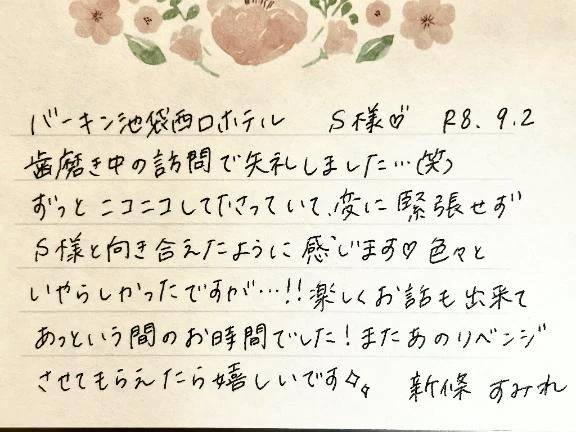 バーキン池袋西口ホテル S様♡ R8.9.2
歯磨き中の訪問で失礼しました…(笑)
ずっとニコニコして下さっていて、変に緊張せず
S様と向き合えたように感じます♡ 色々と
いやらしかったですが…!! 楽しくお話も出来て
あっという間のお時間でした!またあのリベンジ
させてもらえたら嬉しいです✧。 新條 すみれ